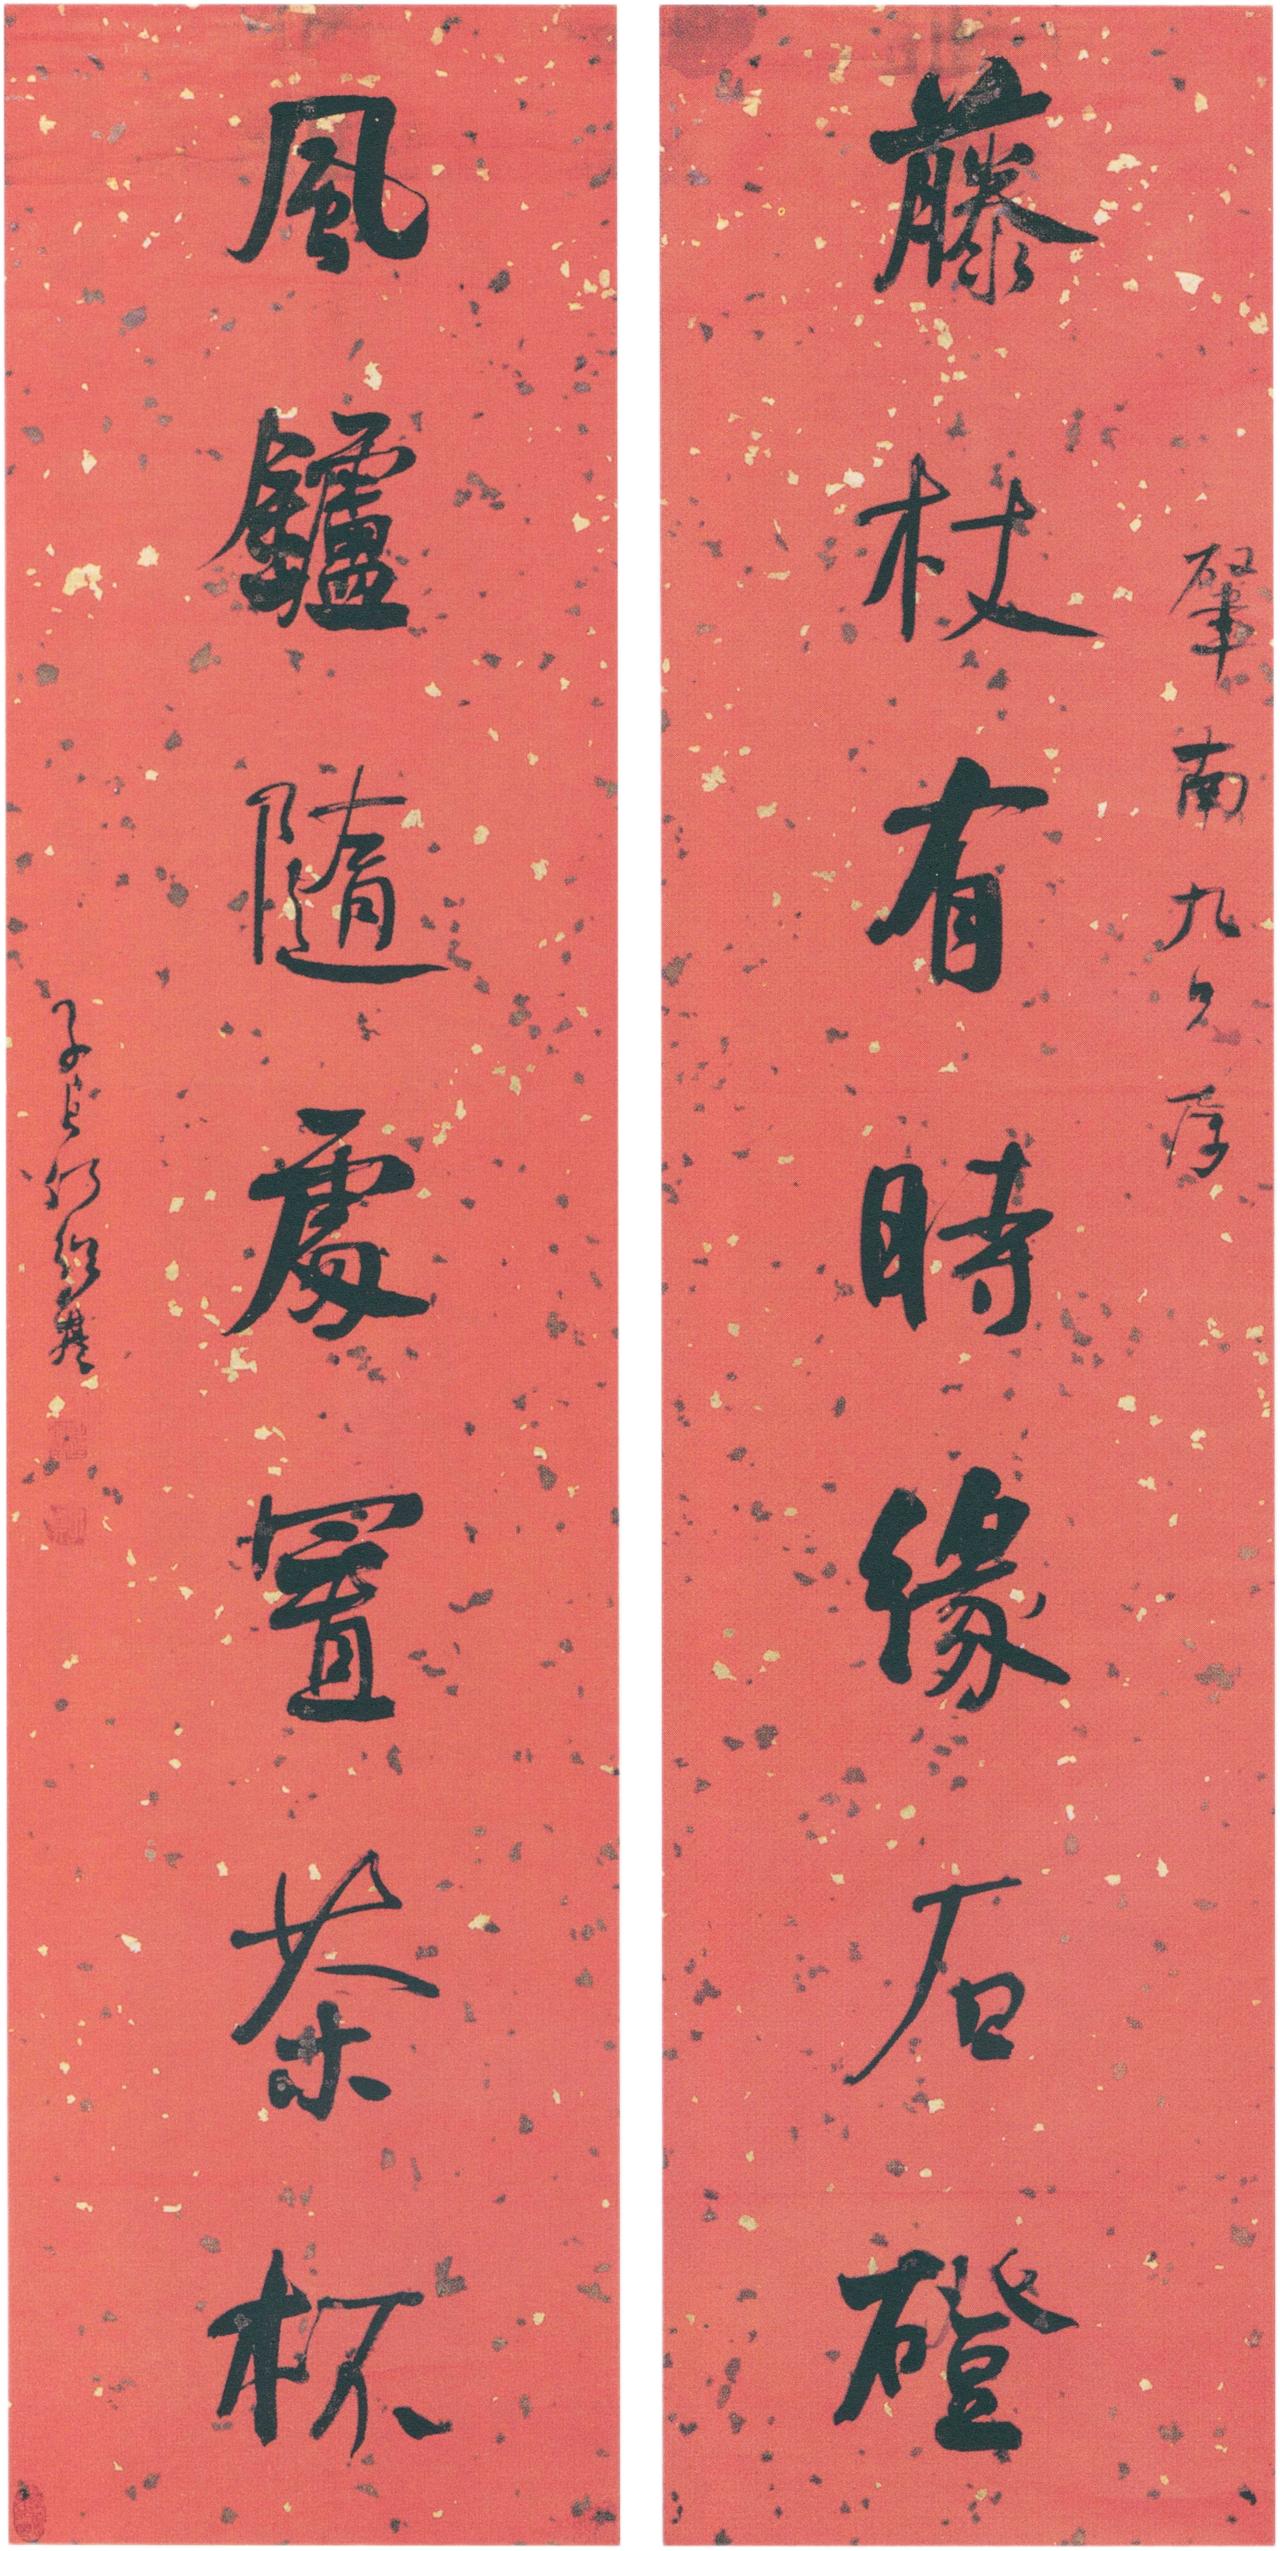 肇南九兄存
藤杖有時緣石磴
風鑪隨處置茶杯
子貞何紹基